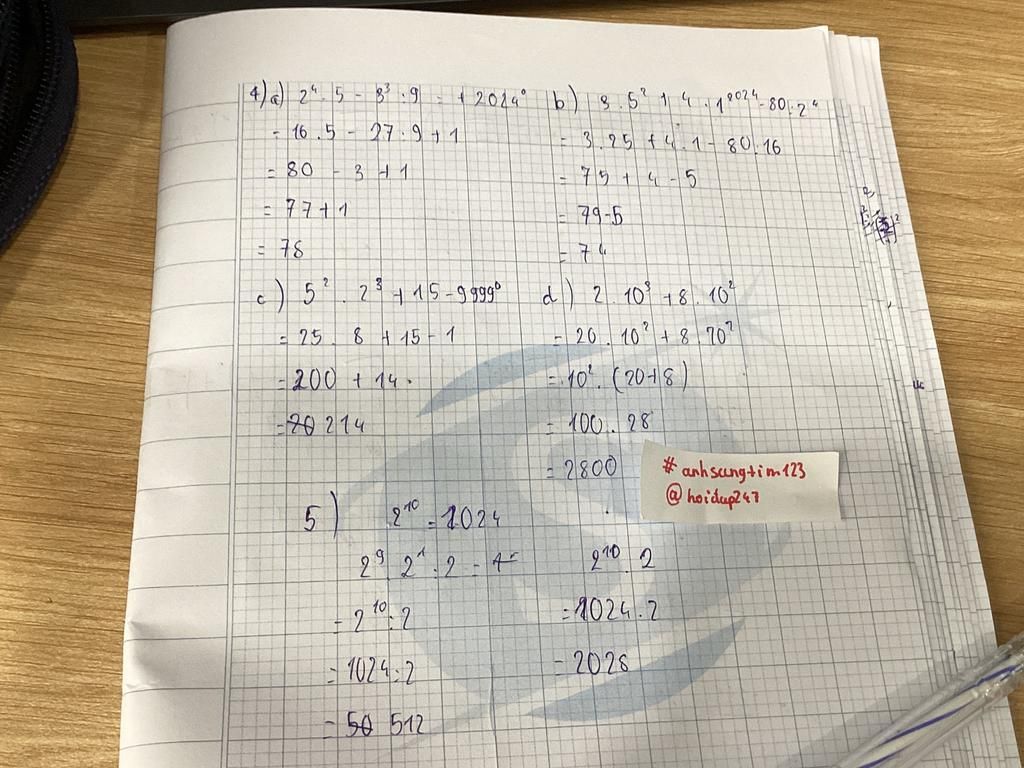 4) a) 2⁴ . 5 - 3³ : 9 = + 2024⁰
= 16 . 5 - 27 : 9 + 1
= 80 - 3 + 1
= 77 + 1
= 78
b) 3 . 5² + 4 . 1²⁰²⁴ - 80 : 2⁴
= 3 . 25 + 4 . 1 - 80 : 16
= 75 + 4 - 5
= 79 - 5
= 74
c) 5² . 2³ + 15 - 9999⁰
= 25 . 8 + 15 - 1
= 200 + 14
= 214
d) 2 . 10³ + 8 . 10²
= 20 . 10² + 8 . 10²
= 10² . (20 + 8)
= 100 . 28
= 2800
# anhsangtim123
@hoidap247
5) 2¹⁰ = 1024
2⁹ 2¹ : 2 =
= 2¹⁰ : 2
= 1024 : 2
= 512
2¹⁰ . 2
= 1024 . 2
= 2028